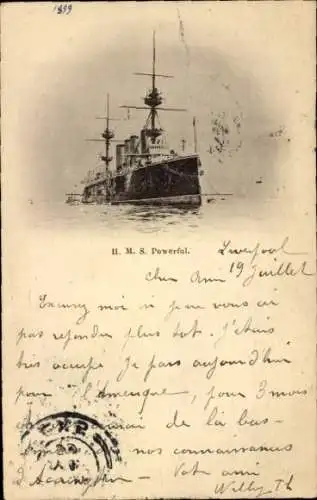 1899
H. M. S. Powerful.
Liverpool
19 Juillet
cher Ami
Excusez moi si je ne vous ai
pas repondu plus tot. J'étais
très occupé. Je pars aujourd'hui
pour l'Amerique, pour 3 mois
de là bas
nos connaissances
Votre ami
Willy Th